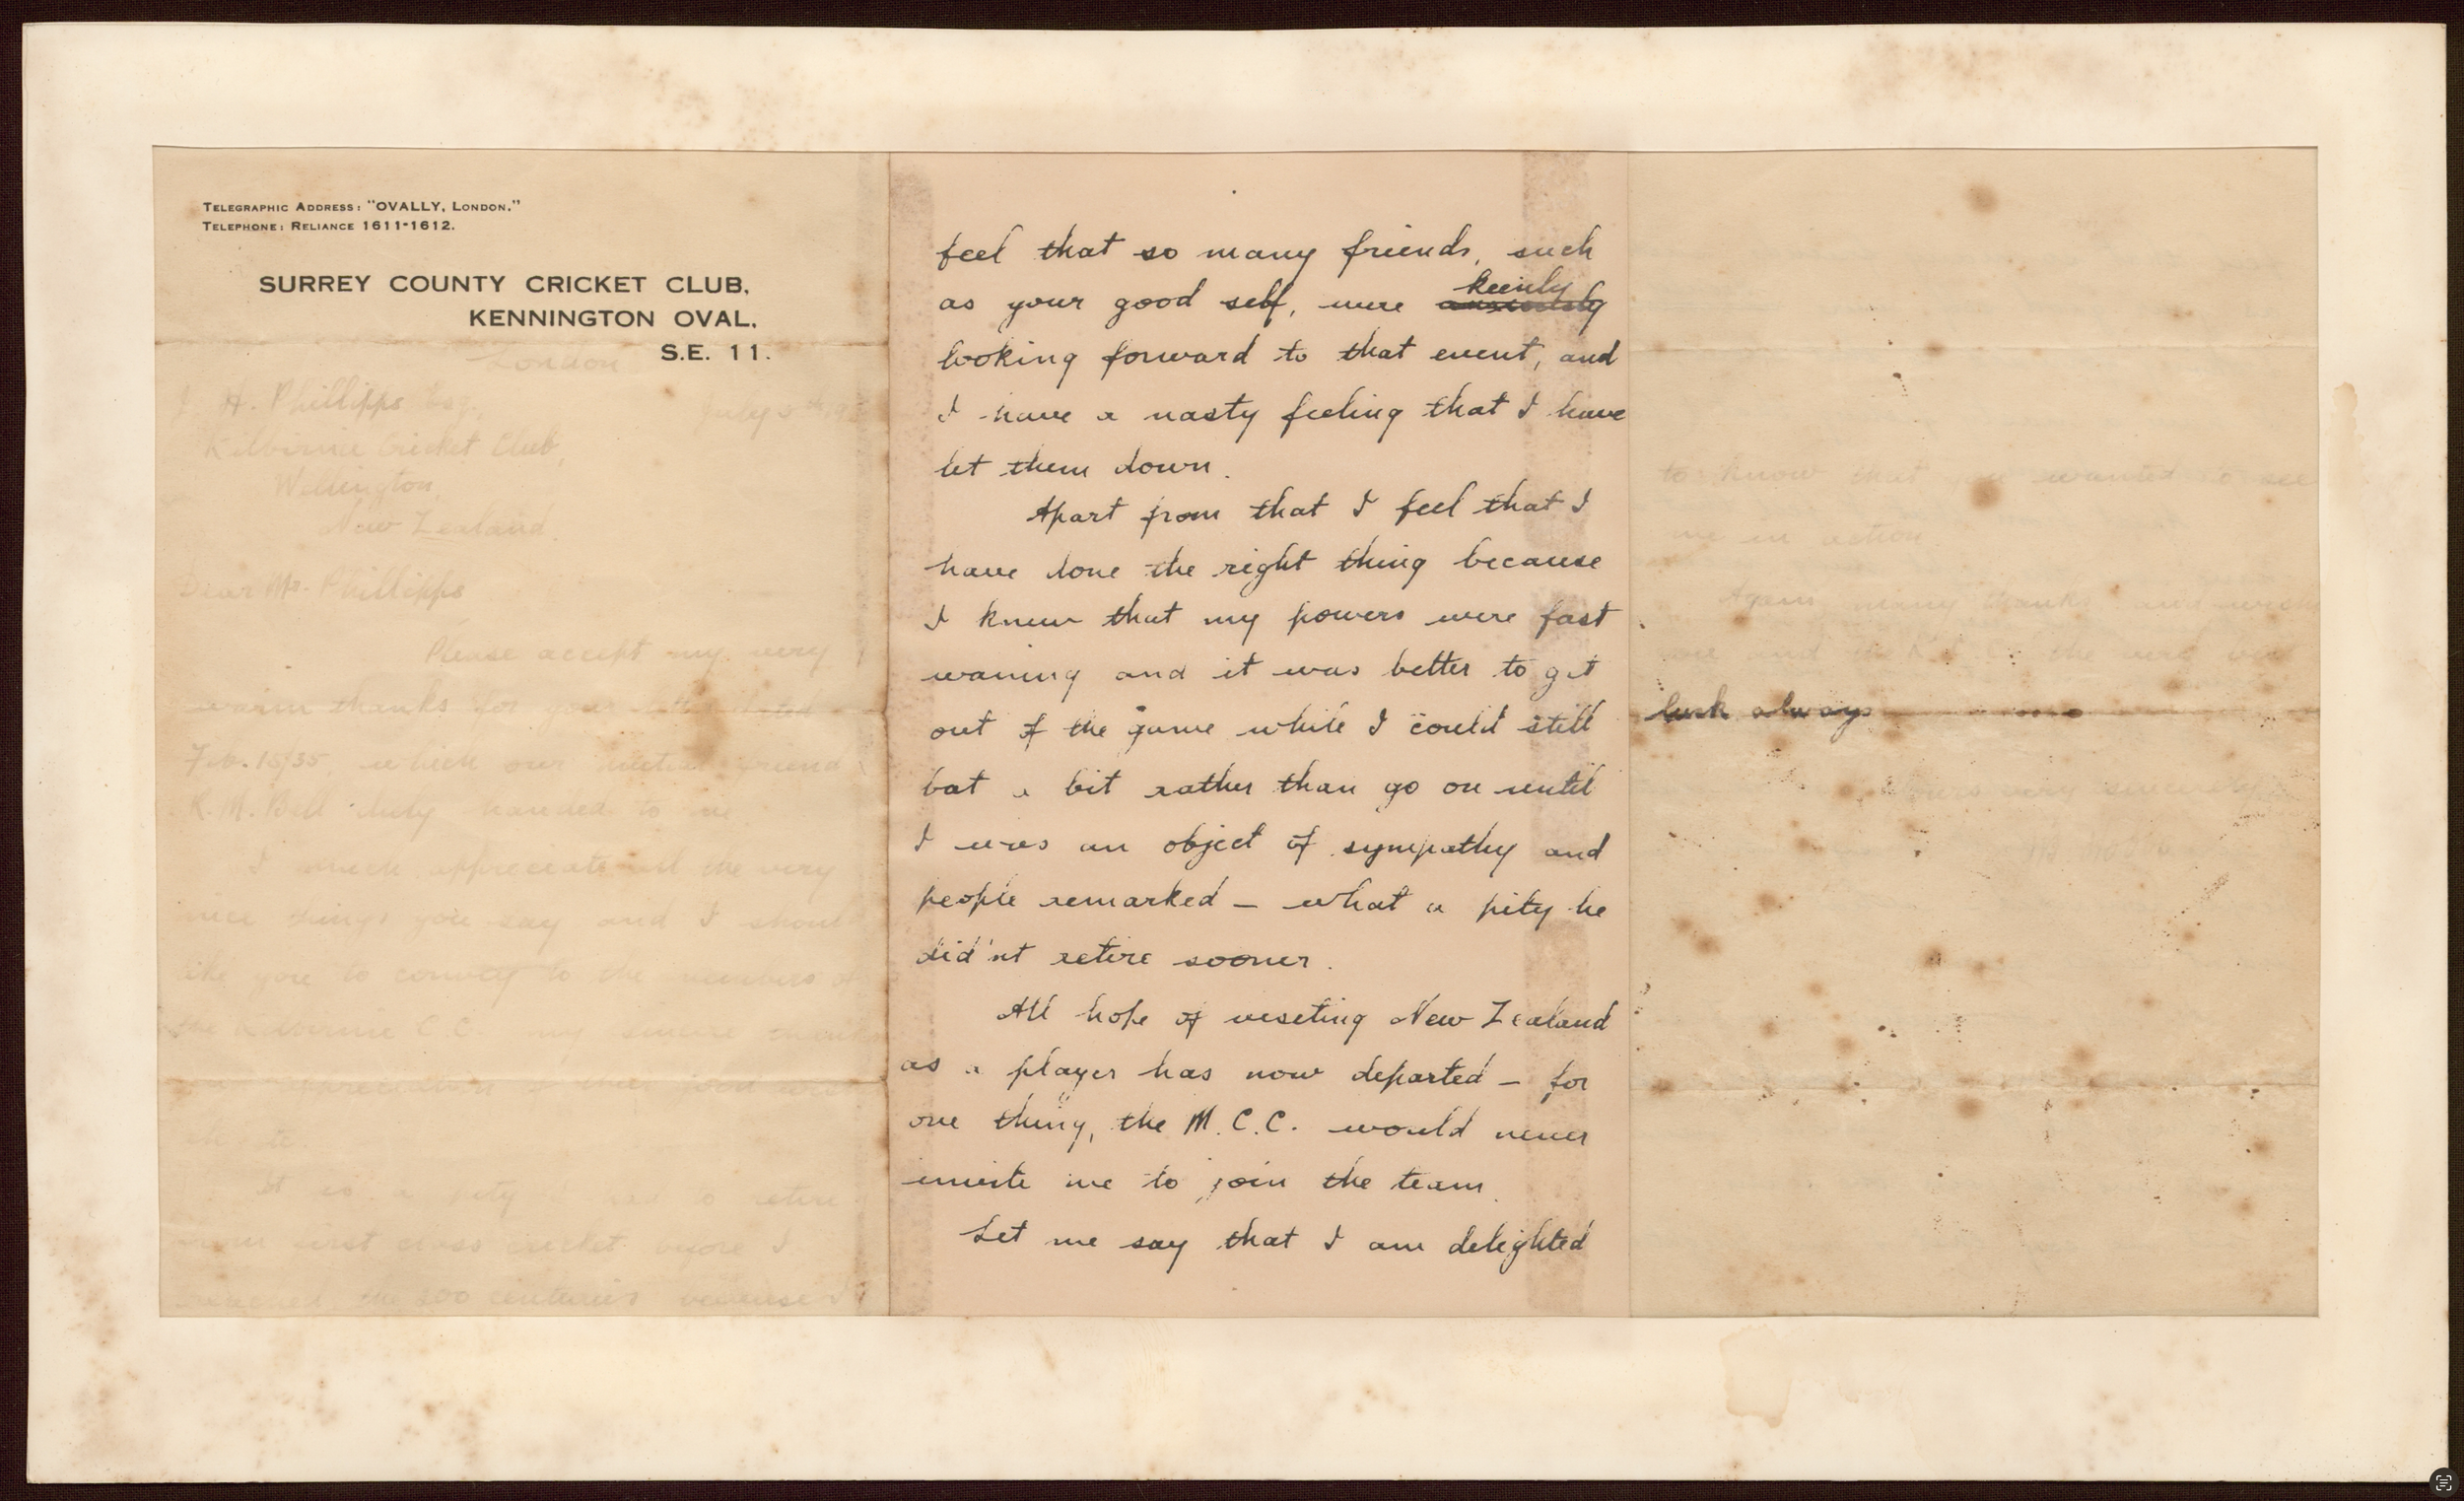 TELEGRAPHIC ADDRESS: "OVALLY, LONDON."
TELEPHONE: RELIANCE 1611-1612.
SURREY COUNTY CRICKET CLUB,
KENNINGTON OVAL,
S.E. 11.
London
J. H. Phillipps Esq.,
July 5th
Kilbirnie Cricket Club,
Wellington,
New Zealand.
Dear Mr. Phillipps
Please accept my very
warm thanks for your letter dated
Feb. 15/35, which our mutual friend
K. M. Bell duly handed to me.
I much appreciate all the very
nice things you say and I should
like you to convey to the members of
the Kilbirnie C.C. my sincere thanks
It is a pity I had to retire
from first class cricket before I
reached the 200 centuries because I
feel that so many friends, such
keenly
as your good self, were anxiously
looking forward to that event, and
I have a nasty feeling that I have
let them down.
Apart from that I feel that I
have done the right thing because
I knew that my powers were fast
waning and it was better to get
out of the game while I could still
bat a bit rather than go on until
I was an object of sympathy and
people remarked – what a pity he
did'nt retire sooner.
All hope of visiting New Zealand
as a player has now departed – for
one thing, the M.C.C. would never
invite me to join the team.
Let me say that I am delighted
to know that you wanted to see
me in action.
Again many thanks and wish
you and the K.C.C. the very best
luck always
Yours very sincerely